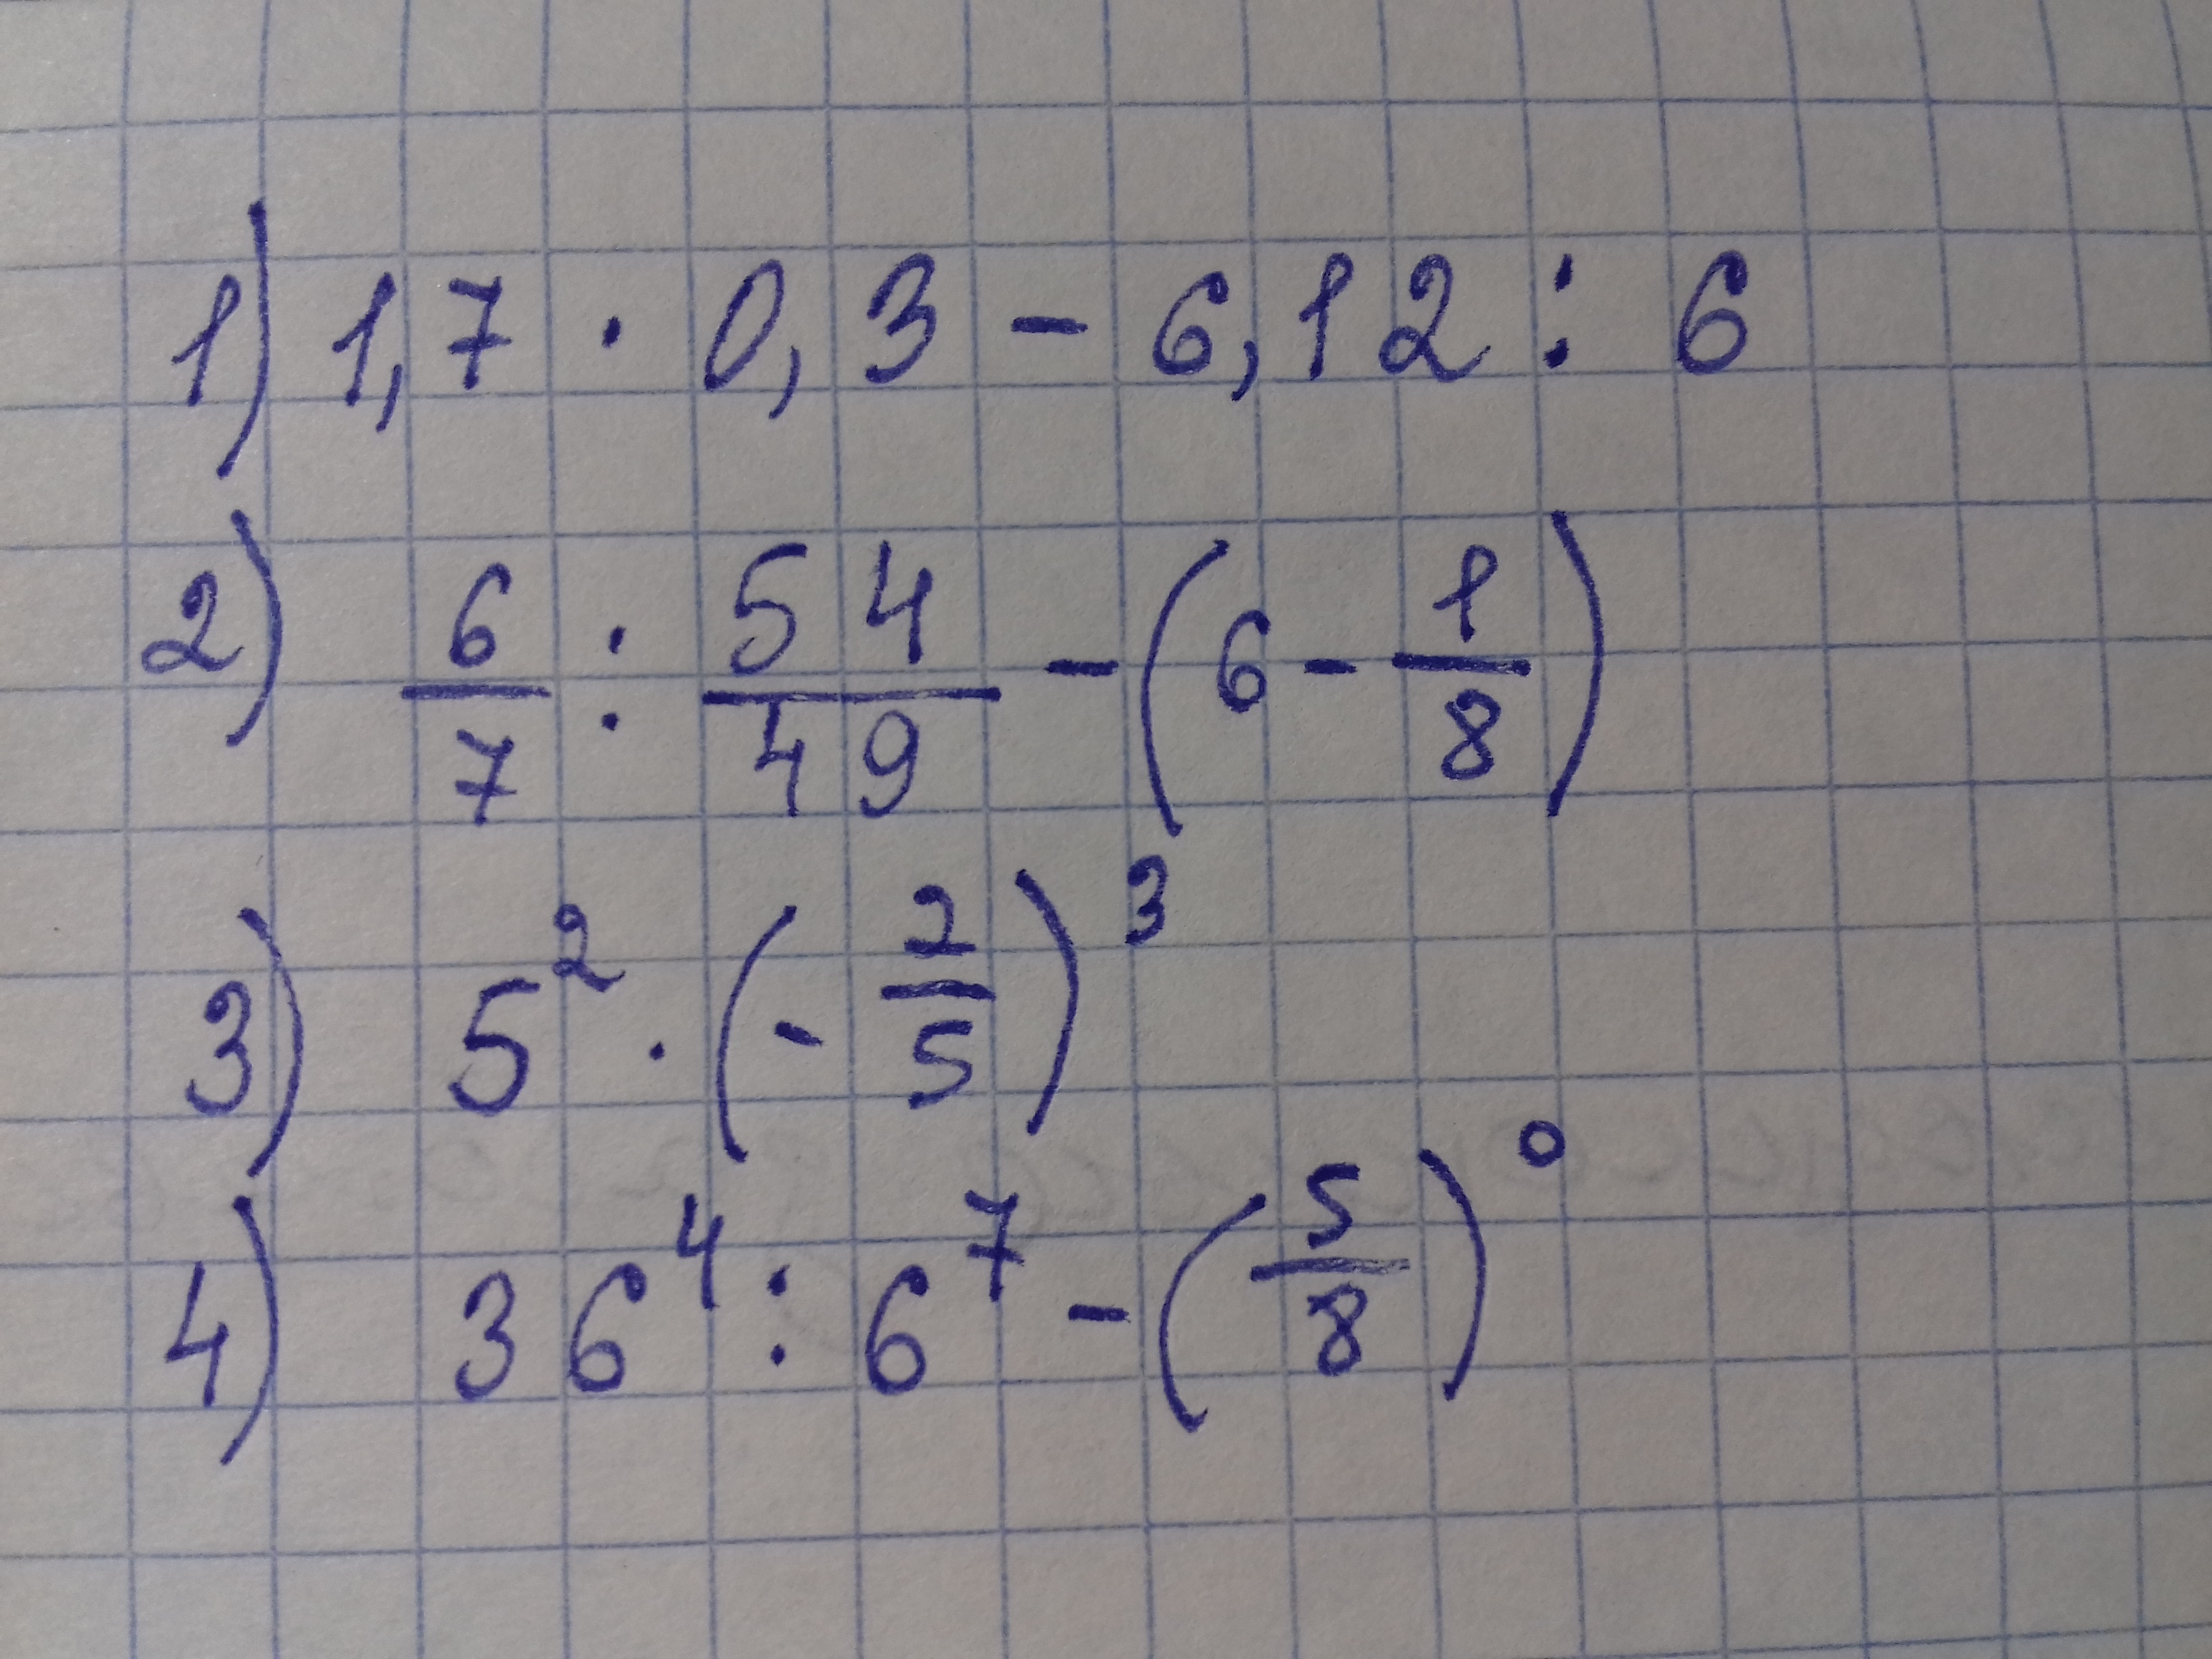 1) 1,7 · 0,3 - 6,12 : 6
2) 6/7 : 54/49 - (6 - 1/8)
3) 5² · (- 2/5)³
4) 36⁴ : 6⁷ - (5/8)⁰